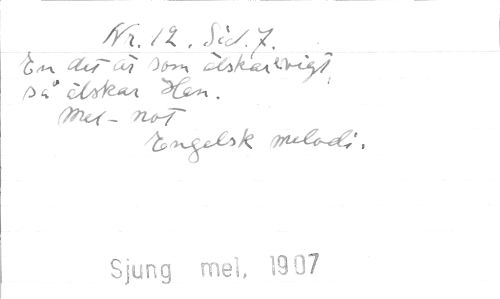 Nr. 12. Sid. 7.
En det är som älskar evigt,
så älskar Han.
Mel-not
Engelsk melodi.
Sjung mel, 1907